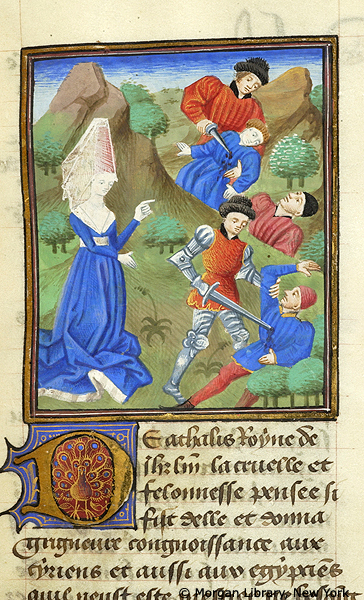 De Athalis Royne de
ihrlm̄ la cruelle et
felonnesse pensee si
fist delle et donna
grigneure congnoissance aux
tyriens et aussi aux egypciens
© Morgan Library, New York